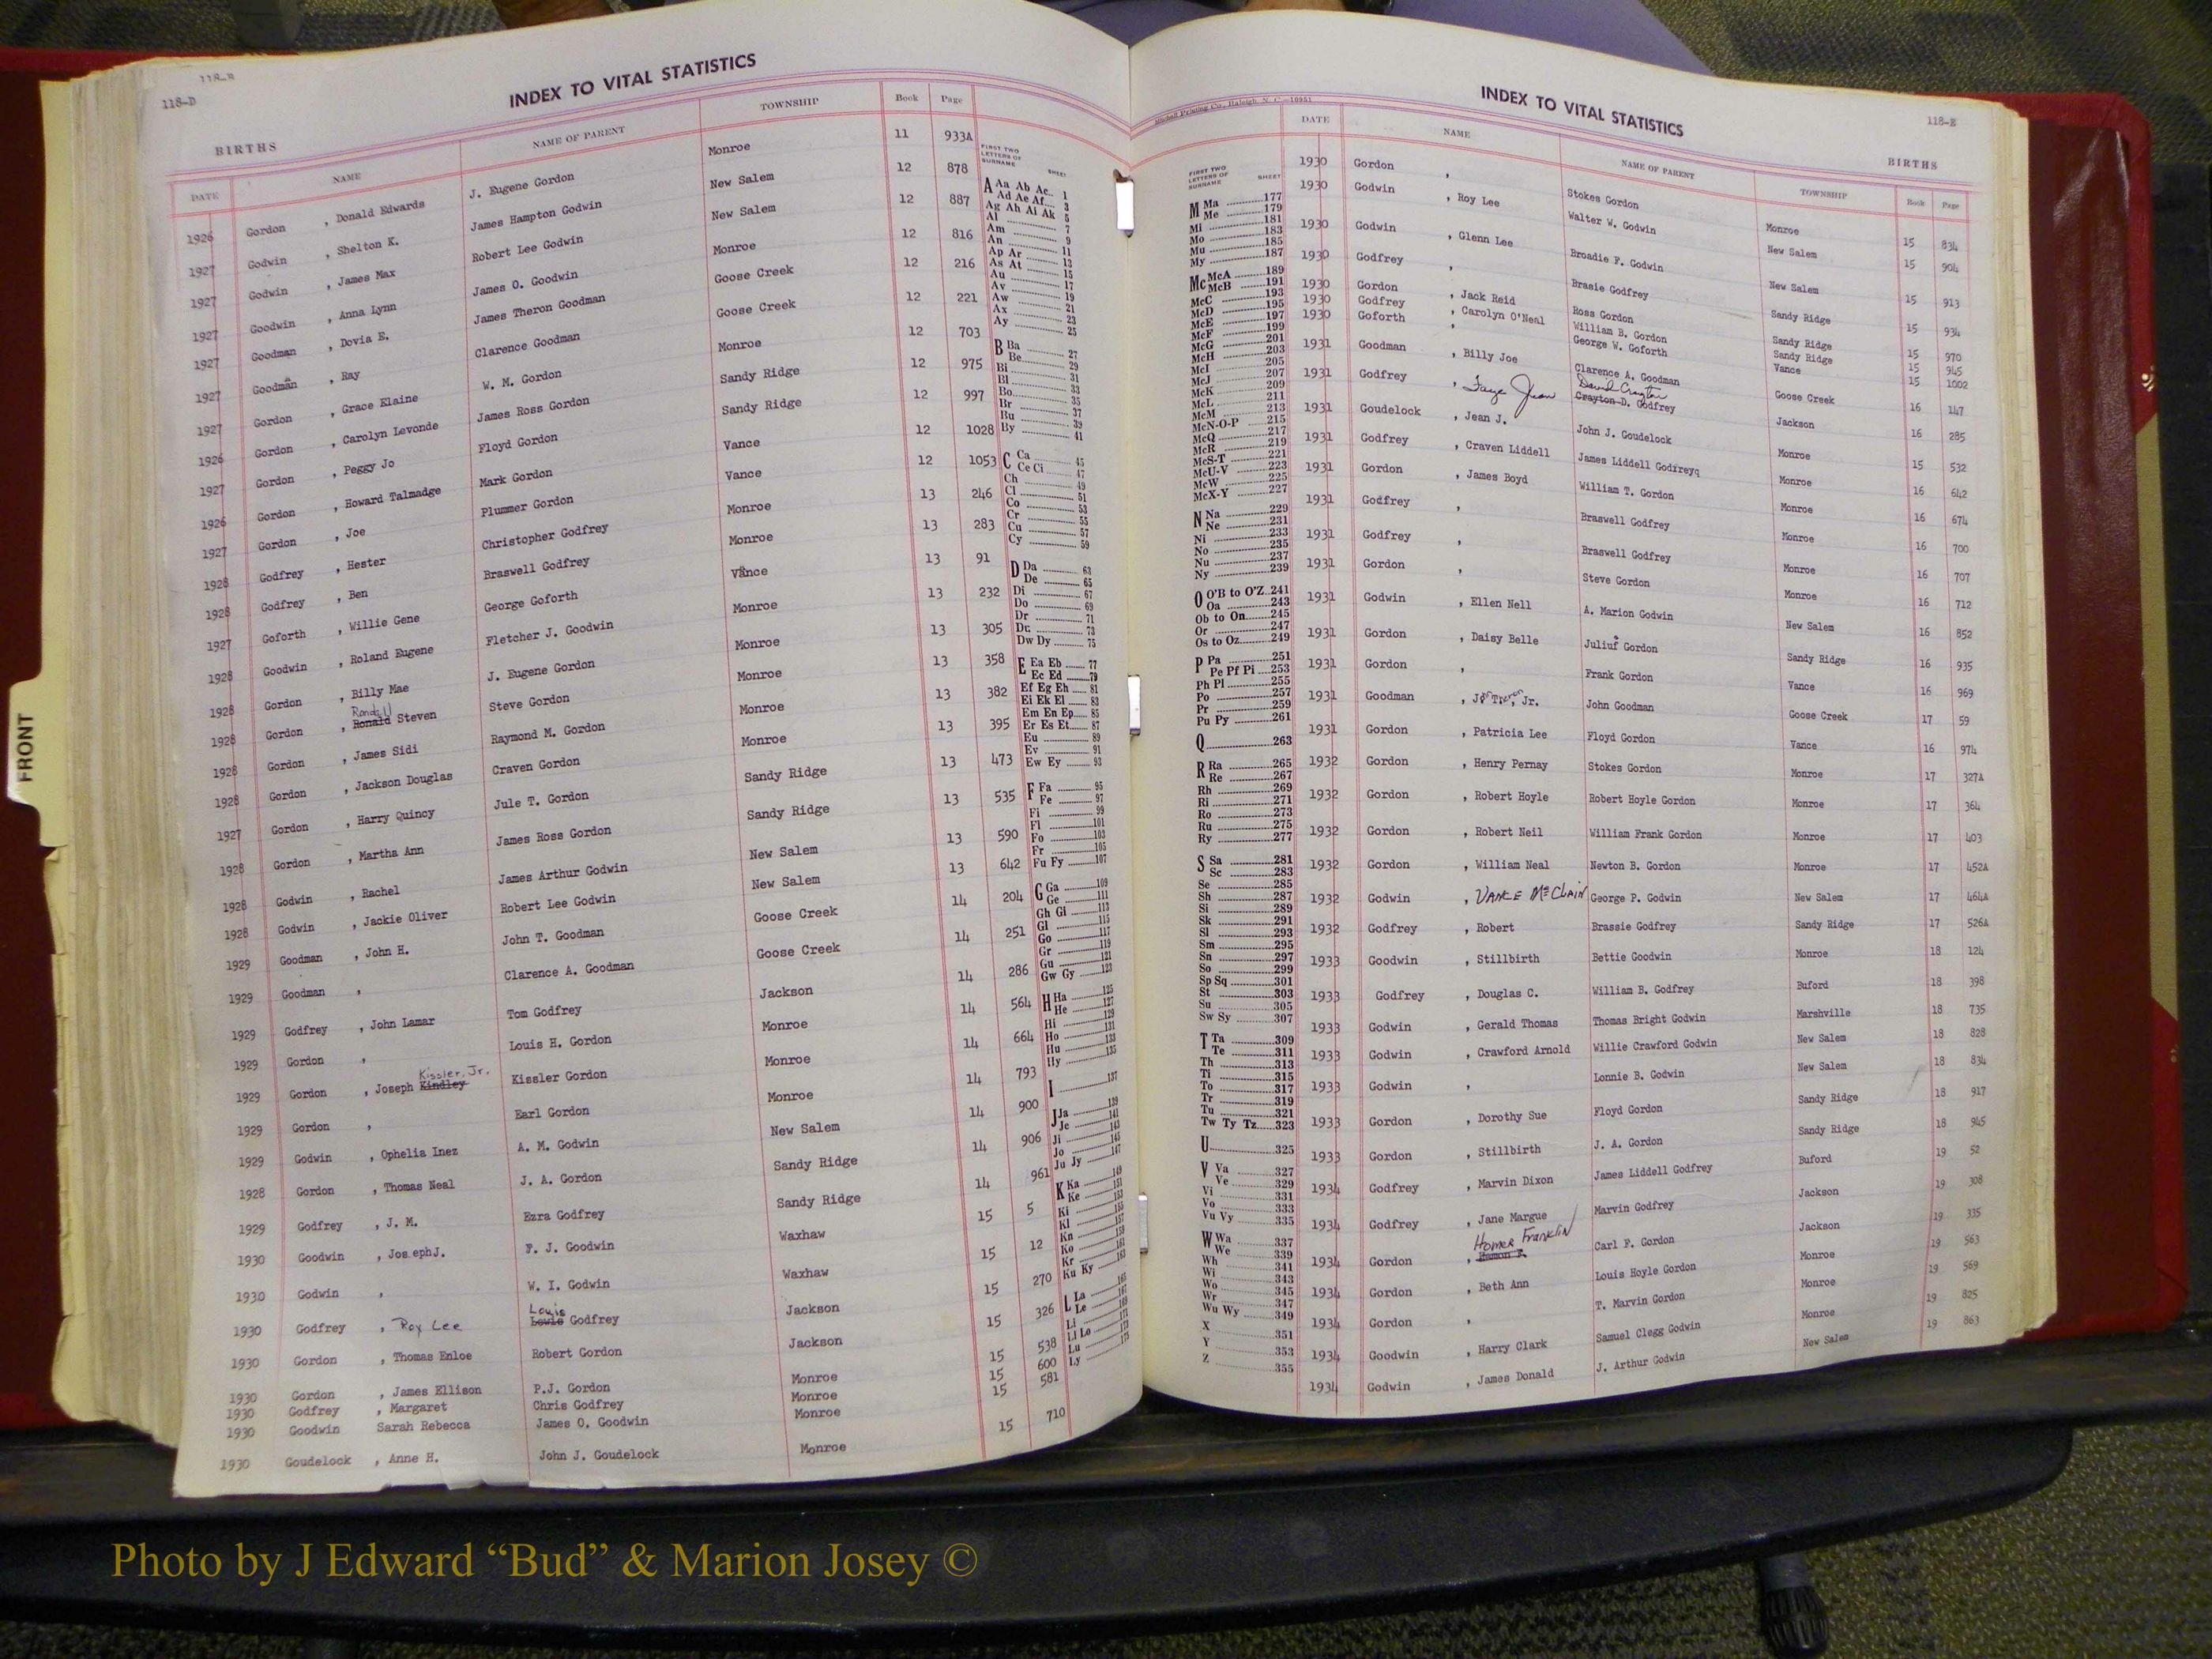 118-D
INDEX TO VITAL STATISTICS
BIRTHS
DATE NAME NAME OF PARENT TOWNSHIP Book Page
1926 Gordon , Donald Edwards J. Eugene Gordon Monroe 11 933A
1927 Godwin , Shelton K. James Hampton Godwin New Salem 12 878
1927 Godwin , James Max Robert Lee Godwin New Salem 12 887
1927 Goodwin , Anna Lynn James O. Goodwin Monroe 12 816
1927 Goodman , Dovia E. James Theron Goodman Goose Creek 12 216
1927 Goodman , Ray Clarence Goodman Goose Creek 12 221
1927 Gordon , Grace Elaine W. M. Gordon Monroe 12 703
1926 Gordon , Carolyn Levonde James Ross Gordon Sandy Ridge 12 975
1927 Gordon , Peggy Jo Floyd Gordon Sandy Ridge 12 997
1926 Gordon , Howard Talmadge Mark Gordon Vance 12 1028
1927 Gordon , Joe Plummer Gordon Vance 12 1053
1928 Godfrey , Hester Christopher Godfrey Monroe 13 246
1928 Godfrey , Ben Braswell Godfrey Monroe 13 283
1927 Goforth , Willie Gene George Goforth Vance 13 91
1928 Goodwin , Roland Eugene Fletcher J. Goodwin Monroe 13 232
1928 Gordon , Billy Mae J. Eugene Gordon Monroe 13 305
1928 Gordon , Ronald Steven Steve Gordon Monroe 13 358
1928 Gordon , James Sidi Raymond M. Gordon Monroe 13 382
1928 Gordon , Jackson Douglas Craven Gordon Monroe 13 395
1927 Gordon , Harry Quincy Jule T. Gordon Sandy Ridge 13 473
1928 Gordon , Martha Ann James Ross Gordon Sandy Ridge 13 535
1928 Godwin , Rachel James Arthur Godwin New Salem 13 590
1928 Godwin , Jackie Oliver Robert Lee Godwin New Salem 13 642
1929 Goodman , John H. John T. Goodman Goose Creek 14 204
1929 Goodman , Clarence A. Goodman Goose Creek 14 251
1929 Godfrey , John Lamar Tom Godfrey Jackson 14 286
1929 Gordon , Louis H. Gordon Monroe 14 564
Kissler, Jr.
1929 Gordon , Joseph Kindley Kissler Gordon Monroe 14 664
1929 Gordon , Earl Gordon Monroe 14 793
1929 Godwin , Ophelia Inez A. M. Godwin New Salem 14 900
1928 Gordon , Thomas Neal J. A. Gordon Sandy Ridge 14 906
1929 Godfrey , J. M. Ezra Godfrey Sandy Ridge 14 961
1930 Goodwin , JosephJ. F. J. Goodwin Waxhaw 15 5
1930 Godwin , W. I. Godwin Waxhaw 15 12
Louis
1930 Godfrey , Roy Lee Lewis Godfrey Jackson 15 270
1930 Gordon , Thomas Enloe Robert Gordon Jackson 15 326
1930 Gordon , James Ellison P.J. Gordon Monroe 15 538
1930 Godfrey , Margaret Chris Godfrey Monroe 15 600
1930 Goodwin Sarah Rebecca James O. Goodwin Monroe 15 581
1930 Goudelock , Anne H. John J. Goudelock Monroe 15 710
FRONT
FIRST TWO LETTERS OF SURNAME SHEET
A Aa Ab Ac 1
Ad Ae Af 3
Ag Ah Ai Ak 5
Al 7
Am 9
An 11
Ap Ar 13
As At 15
Au 17
Av 19
Aw 21
Ax 23
Ay 25
B Ba 27
Be 29
Bi 31
Bl 33
Bo 35
Br 37
Bu 39
By 41
C Ca 45
Ce Ci 47
Ch 49
Cl 51
Co 53
Cr 55
Cu 57
Cy 59
D Da 63
De 65
Di 67
Do 69
Dr 71
Du 73
Dw Dy 75
E Ea Eb 77
Ec Ed 79
Ef Eg Eh 81
Ei Ek El 83
Em En Ep 85
Er Es Et 87
Eu 89
Ev 91
Ew Ey 93
F Fa 95
Fe 97
Fi 99
Fl 101
Fo 103
Fr 105
Fu Fy 107
G Ga 109
Ge 111
Gh Gi 113
Gl 115
Go 117
Gr 119
Gu 121
Gw Gy 123
H Ha 125
He 127
Hi 129
Ho 131
Hu 133
Hy 135
I 137
J Ja 139
Je 141
Ji 143
Jo 145
Ju Jy 147
K Ka 149
Ke 151
Ki 153
Kl 155
Kn 157
Ko 159
Kr 161
Ku Ky 163
L La 165
Le 167
Li 169
Ll Lo 171
Lu 173
Ly 175
INDEX TO VITAL STATISTICS
118-E
BIRTHS
FIRST TWO LETTERS OF SURNAME SHEET
M Ma 177
Me 179
Mi 181
Mo 183
Mu 185
My 187
Mc McA 189
McB 191
McC 193
McD 195
McE 197
McF 199
McG 201
McH 203
McI 205
McJ 207
McK 209
McL 211
McM 213
McN-O-P 215
McQ 217
McR 219
McS-T 221
McU-V 223
McW 225
McX-Y 227
N Na 229
Ne 231
Ni 233
No 235
Nu 237
Ny 239
O O'B to O'Z 241
Oa 243
Ob to On 245
Or 247
Os to Oz 249
P Pa 251
Pe Pf Pi 253
Ph Pl 255
Po 257
Pr 259
Pu Py 261
Q 263
R Ra 265
Re 267
Rh 269
Ri 271
Ro 273
Ru 275
Ry 277
S Sa 281
Sc 283
Se 285
Sh 287
Si 289
Sk 291
Sl 293
Sm 295
Sn 297
So 299
Sp Sq 301
St 303
Su 305
Sw Sy 307
T Ta 309
Te 311
Th 313
Ti 315
To 317
Tr 319
Tu 321
Tw Ty Tz 323
U 325
V Va 327
Ve 329
Vi 331
Vo 333
Vu Vy 335
W Wa 337
We 339
Wh 341
Wi 343
Wo 345
Wr 347
Wu Wy 349
X 351
Y 353
Z 355
DATE NAME NAME OF PARENT TOWNSHIP Book Page
1930 Gordon , Stokes Gordon Monroe 15 834
1930 Godwin , Roy Lee Walter W. Godwin New Salem 15 904
1930 Godwin , Glenn Lee Broadie F. Godwin New Salem 15 913
1930 Godfrey , Brasie Godfrey Sandy Ridge 15 934
1930 Gordon , Jack Reid Ross Gordon Sandy Ridge 15 970
1930 Godfrey , Carolyn O'Neal William B. Gordon Sandy Ridge 15 945
1930 Goforth , George W. Goforth Vance 15 1002
1931 Goodman , Billy Joe Clarence A. Goodman Goose Creek 16 147
David Crayton
1931 Godfrey , Faye Jean Crayton D. Godfrey Jackson 16 285
1931 Goudelock , Jean J. John J. Goudelock Monroe 15 532
1931 Godfrey , Craven Liddell James Liddell Godfreyq Monroe 16 642
1931 Gordon , James Boyd William T. Gordon Monroe 16 674
1931 Godfrey , Braswell Godfrey Monroe 16 700
1931 Godfrey , Braswell Godfrey Monroe 16 707
1931 Gordon , Steve Gordon Monroe 16 712
1931 Godwin , Ellen Nell A. Marion Godwin New Salem 16 852
1931 Gordon , Daisy Belle Julius Gordon Sandy Ridge 16 935
1931 Gordon , Frank Gordon Vance 16 969
1931 Goodman , Jr. John Goodman Goose Creek 17 59
1931 Gordon , Patricia Lee Floyd Gordon Vance 16 974
1932 Gordon , Henry Pernay Stokes Gordon Monroe 17 327A
1932 Gordon , Robert Hoyle Robert Hoyle Gordon Monroe 17 364
1932 Gordon , Robert Neil William Frank Gordon Monroe 17 403
1932 Gordon , William Neal Newton B. Gordon Monroe 17 452A
1932 Godwin , VANCE McClain George P. Godwin New Salem 17 464A
1932 Godfrey , Robert Brassie Godfrey Sandy Ridge 17 526A
1933 Goodwin , Stillbirth Bettie Goodwin Monroe 18 124
1933 Godfrey , Douglas C. William B. Godfrey Buford 18 398
1933 Godwin , Gerald Thomas Thomas Bright Godwin Marshville 18 735
1933 Godwin , Crawford Arnold Willie Crawford Godwin New Salem 18 828
1933 Godwin , Lonnie B. Godwin New Salem 18 834
1933 Gordon , Dorothy Sue Floyd Gordon Sandy Ridge 18 917
1933 Gordon , Stillbirth J. A. Gordon Sandy Ridge 18 945
1934 Godfrey , Marvin Dixon James Liddell Godfrey Buford 19 52
1934 Godfrey , Jane Margue Marvin Godfrey Jackson 19 308
Homer Franklin
1934 Gordon , Carl F. Gordon Jackson 19 335
1934 Gordon , Beth Ann Louis Hoyle Gordon Monroe 19 563
1934 Gordon , T. Marvin Gordon Monroe 19 569
1934 Goodwin , Harry Clark Samuel Clegg Godwin Monroe 19 825
1934 Godwin , James Donald J. Arthur Godwin New Salem 19 863
Photo by J Edward “Bud” & Marion Josey ©